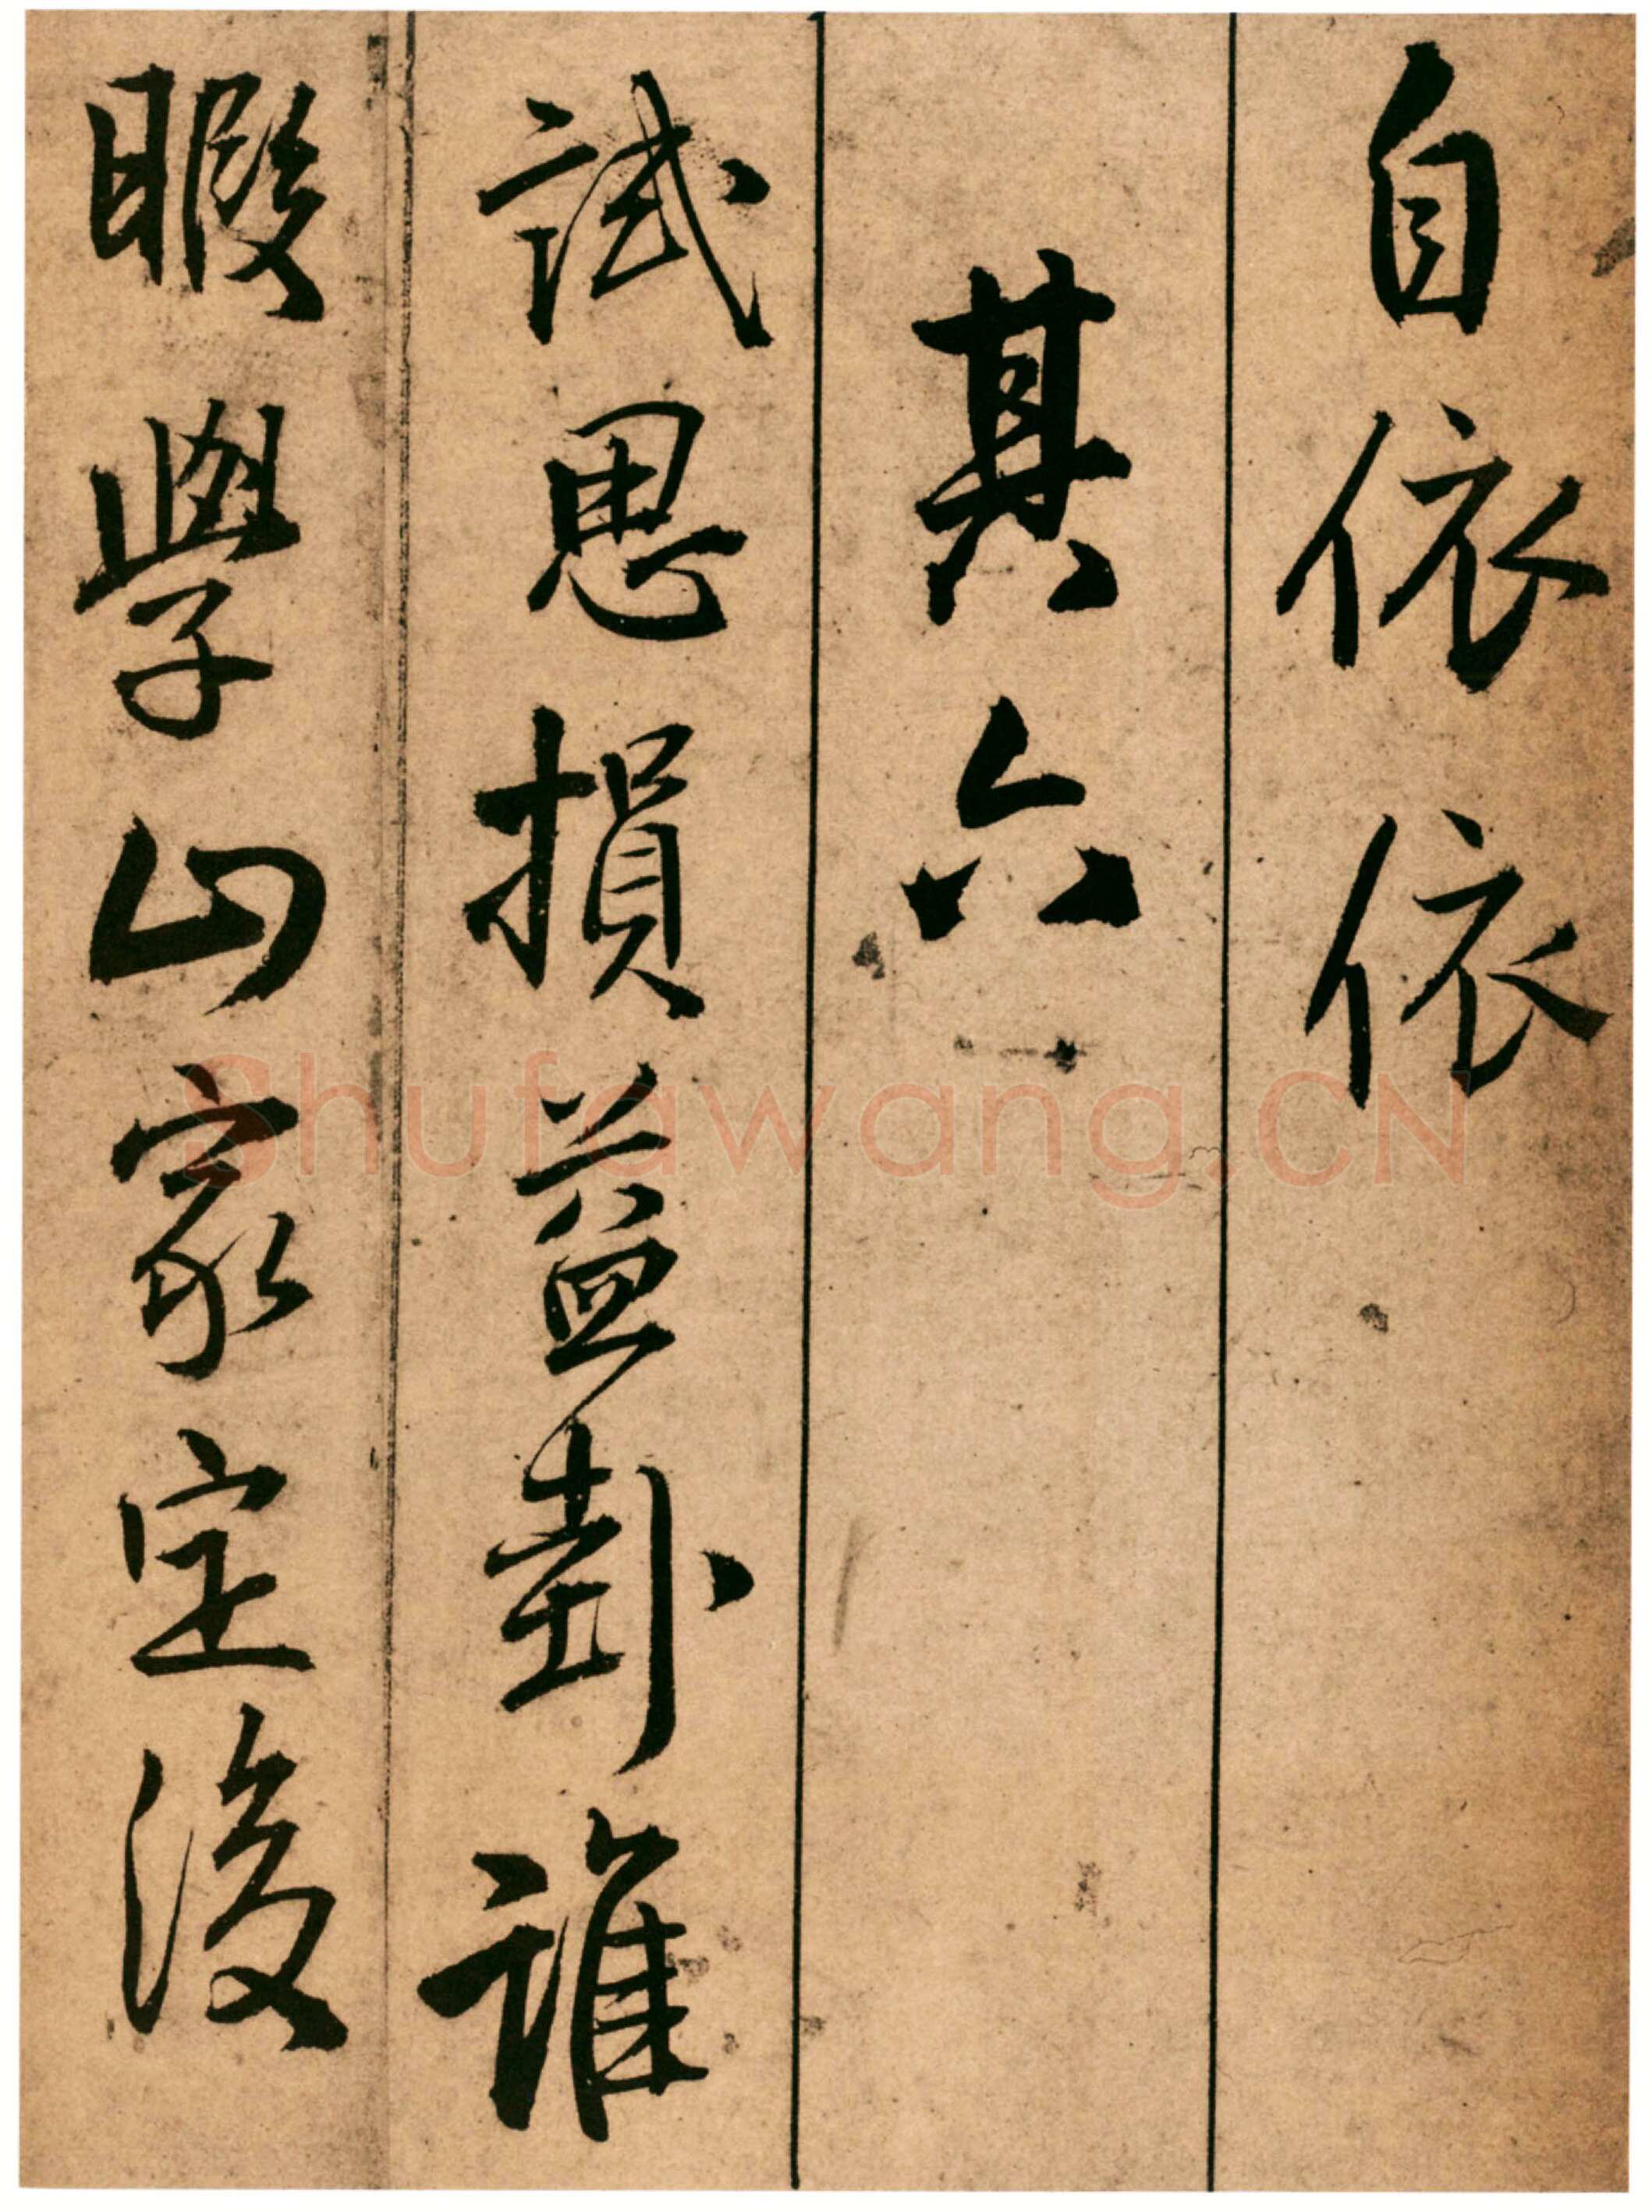 自依依
其六
試思損益卦誰
暇學山家定後
Shufawang.CN